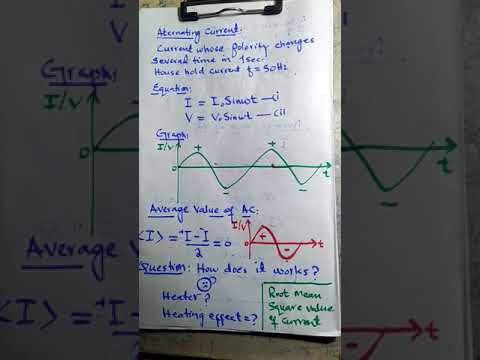 Aternating Current.
Current whose Polarity changes
several time in 1sec.
House hold current f = 50Hz
Equation:
I = I₀Sinωt —(i
V = V₀Sinωt —(ii
Graph:
I/V
+ +
0 t
- -
Average Value of AC:
I/V
<I> = +I-I/2 = 0
0 + - t
Question: How does it works?
Heater?
Heating effect=?
Root Mean
Square value
of current
Graph:
I/V
0
Average
<I> =
t